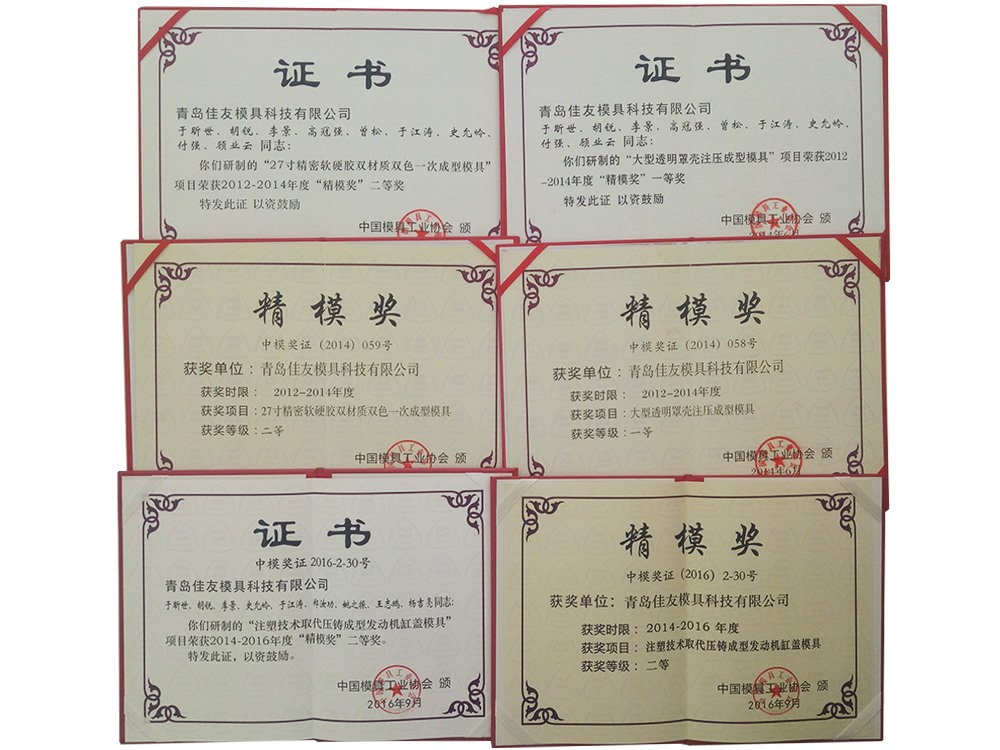 证书
青岛佳友模具科技有限公司
于昕世、胡锐、李景、高冠强、曾松、于江涛、史允岭、
付强、顾业云 同志：
你们研制的“27寸精密软硬胶双材质双色一次成型模具”
项目荣获2012-2014年度“精模奖”二等奖
特发此证 以资鼓励
中国模具工业协会 颁
证书
青岛佳友模具科技有限公司
于昕世、胡锐、李景、高冠强、曾松、于江涛、史允岭、
付强、顾业云 同志：
你们研制的“大型透明罩壳注压成型模具”项目荣获2012
-2014年度“精模奖”一等奖
特发此证 以资鼓励
中国模具工业协会 颁
精模奖
中模奖证（2014）059号
获奖单位：青岛佳友模具科技有限公司
获奖时限： 2012-2014年度
获奖项目：27寸精密软硬胶双材质双色一次成型模具
获奖等级：二等
中国模具工业协会 颁
精模奖
中模奖证（2014）058号
获奖单位：青岛佳友模具科技有限公司
获奖时限： 2012-2014年度
获奖项目：大型透明罩壳注压成型模具
获奖等级：一等
中国模具工业协会 颁
2014年6月
证书
中模奖证 2016-2-30号
青岛佳友模具科技有限公司
于昕世、胡锐、李景、史允岭、于江涛、郑汝功、姚之振、王志鹏、杨吉亮同志：
你们研制的“注塑技术取代压铸成型发动机缸盖模具”
项目荣获2014-2016年度“精模奖”二等奖。
特发此证，以资鼓励。
中国模具工业协会 颁
2016年9月
精模奖
中模奖证（2016）2-30号
获奖单位：青岛佳友模具科技有限公司
获奖时限：2014-2016 年度
获奖项目：注塑技术取代压铸成型发动机缸盖模具
获奖等级：二等
中国模具工业协会 颁
2016年9月